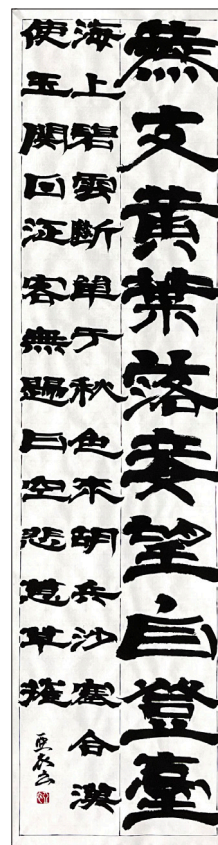 燕支黄葉落妾望白登臺
海上碧雲斷單于秋色來胡兵沙塞合漢
使玉關回征客無歸日空悲蕙草摧